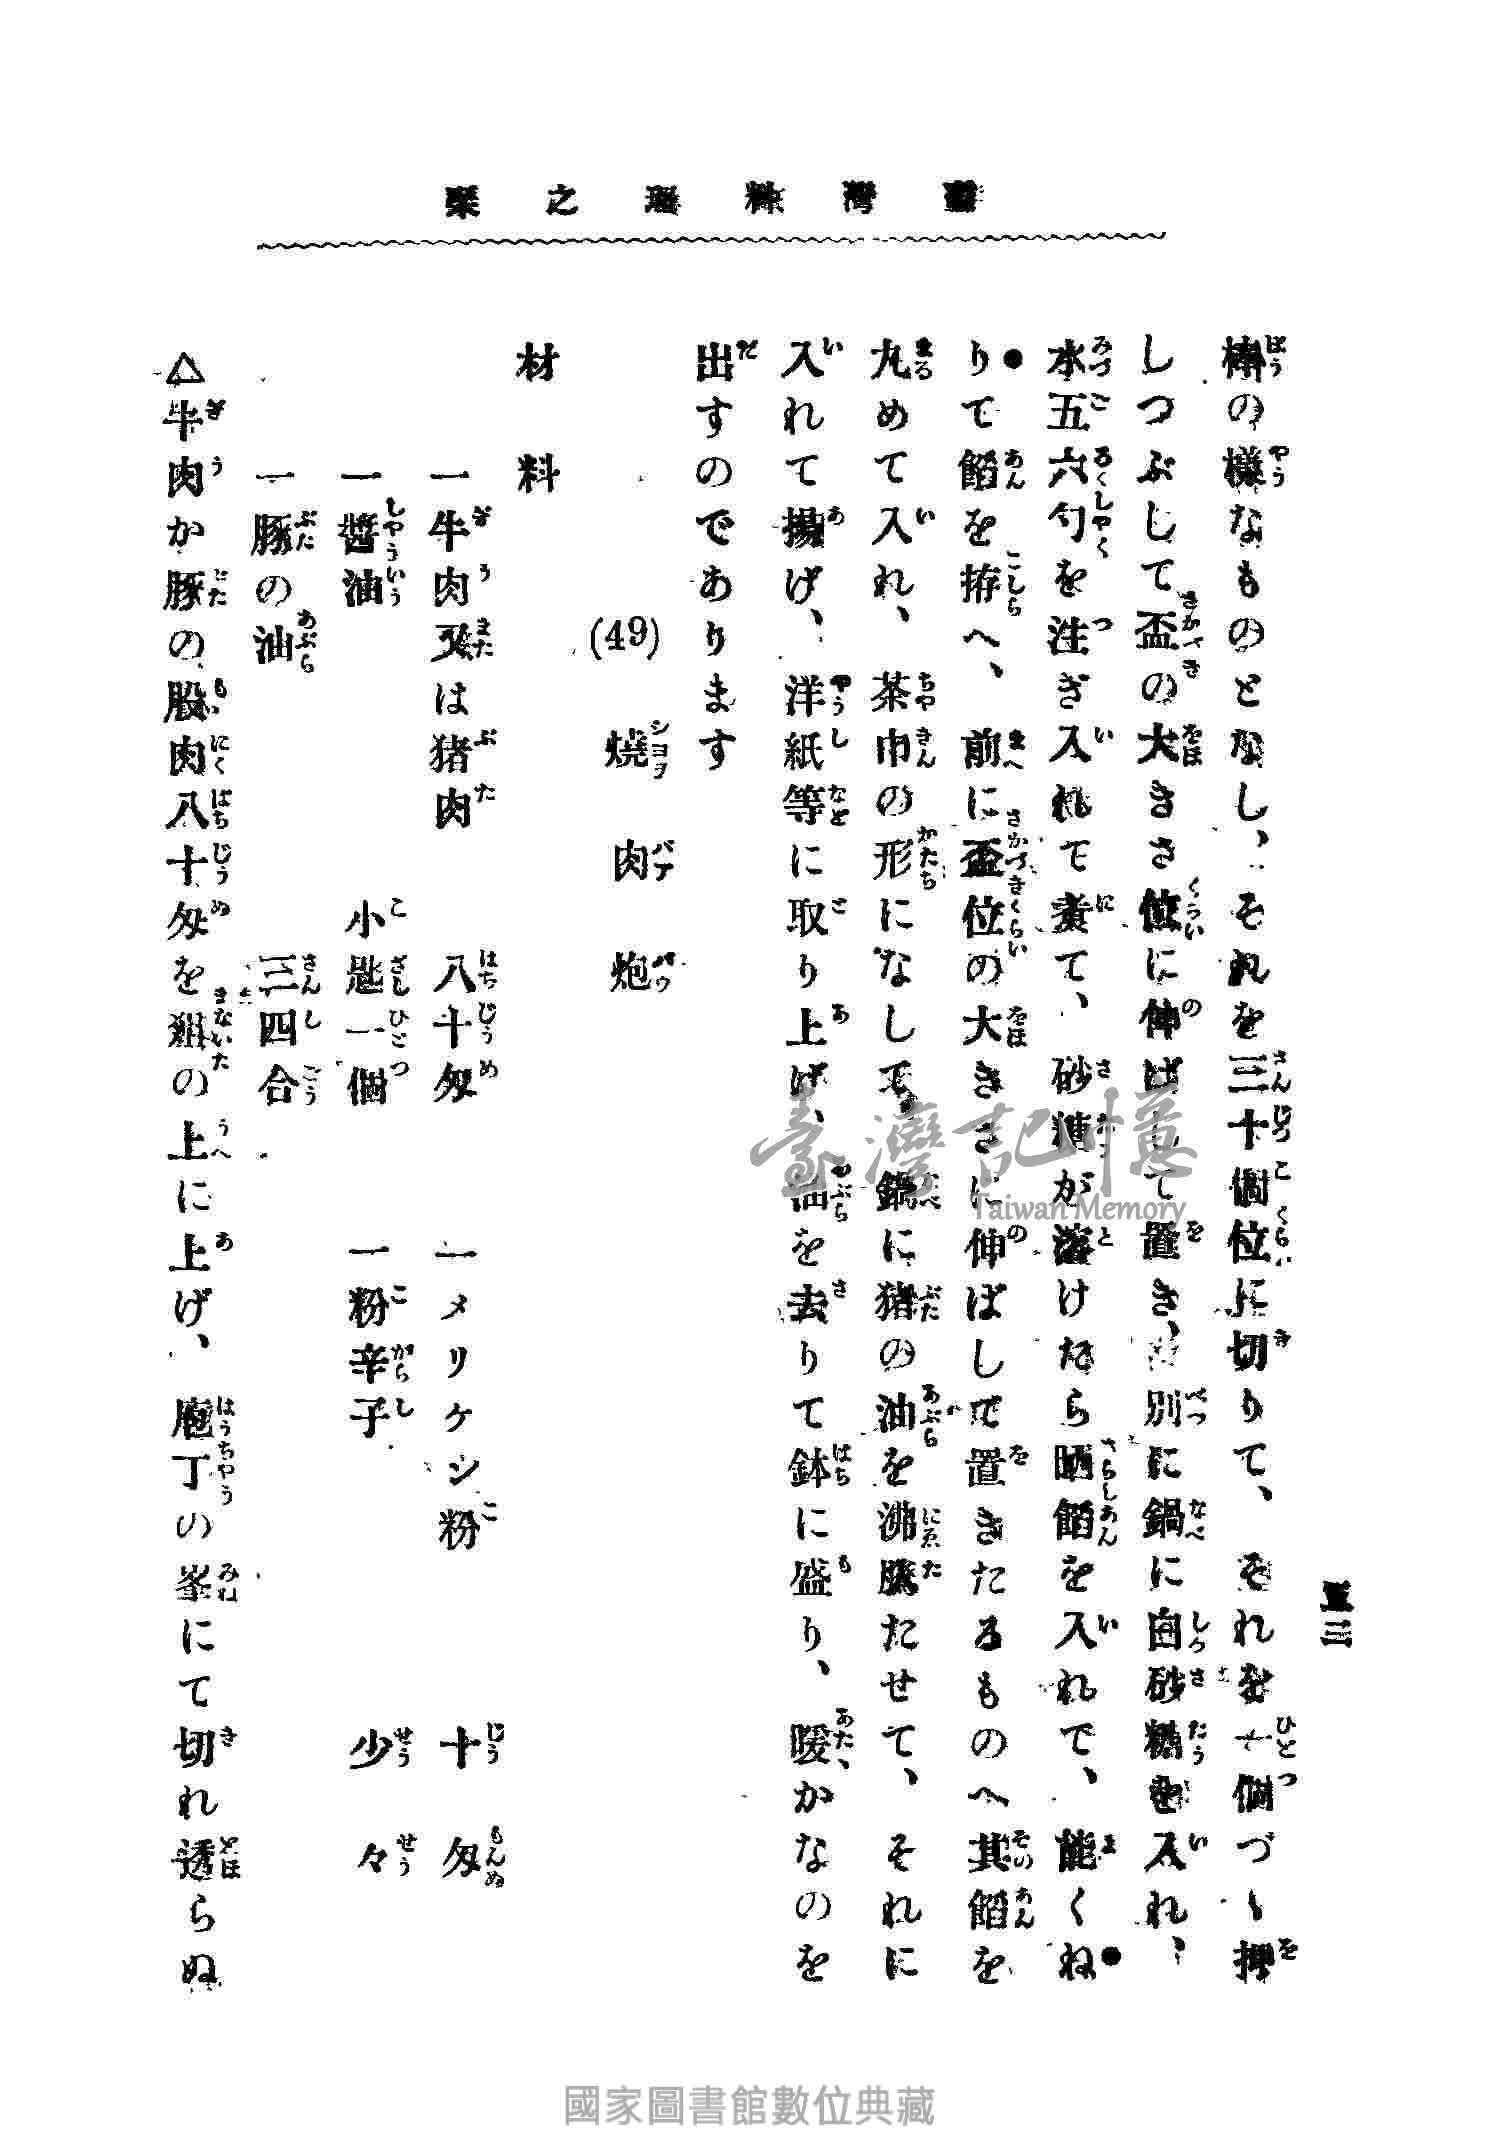 臺灣料理之栞
五三
棒の樣なものとなし、それを三十個位に切りて、それを一個づゝ押
しつぶして盃の大きさ位に伸ばして置き、別に鍋に白砂糖を入れ、
水五六勺を注ぎ入れて煮て、砂糖が溶けたら晒餡を入れて、能くね
りて餡を拵へ、前に盃位の大きさに伸ばして置きたるものへ其餡を
丸めて入れ、茶巾の形になして、鍋に猪の油を沸騰たせて、それに
入れて揚げ、洋紙等に取り上げ、油を去りて鉢に盛り、暖かなのを
出すのであります
(49) 燒肉炮
シヨヲ バア パウ
材料
一牛肉又は猪肉 八十匁 一メリケン粉 十匁
一醬油 小匙一個 一粉辛子 少々
一豚の油 三四合
△牛肉か豚の股肉八十匁を俎の上に上げ、庖丁の峯にて切れ透らぬ
臺灣記憶
Taiwan Memory
國家圖書館數位典藏